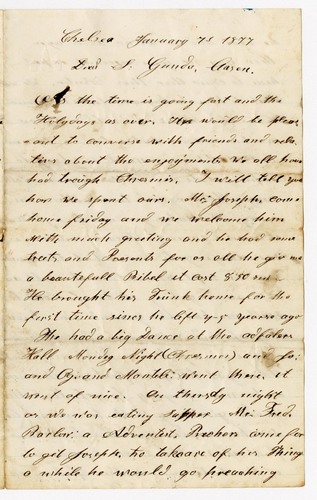 Chelsea January 7d 1877
Lead S. Gunda, Aaron.
As the time is going fast and the
Holydays as over. Hve would be pleas-
ent to converse with friends and rela-
tivs about the enjoyments we all have
had trough Cresmes. I will tell you
how we spent ours. Mr Joseph come
home friday and we welcome him
with much greeting and he had some
treets and Presents for os all he give me
a beautefull Bibel it cost 8.50
He brought his Trunk home for the
first time sines he left 4-5 yeares ago
She had a big Dance at the
Hall Monday Night (Cresmes) and
and Morand went there, it
went of nice. On thersdy night
as we was eating supper Mr Fred.
Barlow a Adventest Preshers come for
to get Joseph to takecare of his Thing
a while he would go preaching